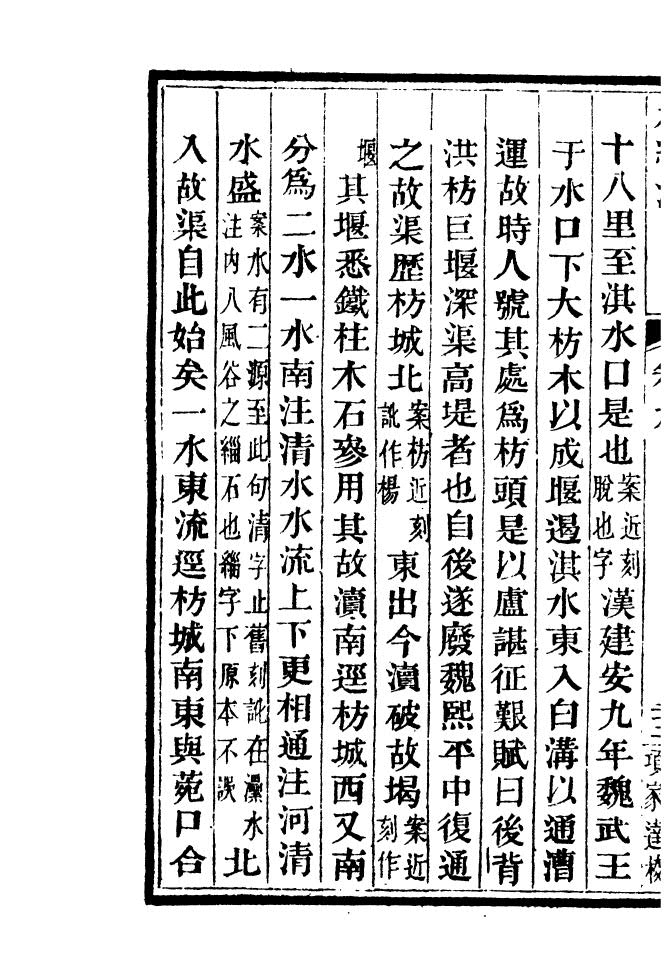 十八里至淇水口是也案近刻脫也字漢建安九年魏武王
于水口下大枋木以成堰遏淇水東入白溝以通漕
運故時人號其處爲枋頭是以盧諶征艱賦曰後背
洪枋巨堰深渠高堤者也自後遂廢魏熙平中復通
之故渠歷枋城北案枋近刻訛作楊東出今瀆破故堨案近刻作
堰其堰悉鐵柱木石參用其故瀆南逕枋城西又南
分爲二水一水南注清水水流上下更相通注河清
水盛案水有二源至此句清字止舊刻訛在瀑水注內八風谷之緇石也緇字下原本不誤北
入故渠自此始矣一水東流逕枋城南東與菀口合